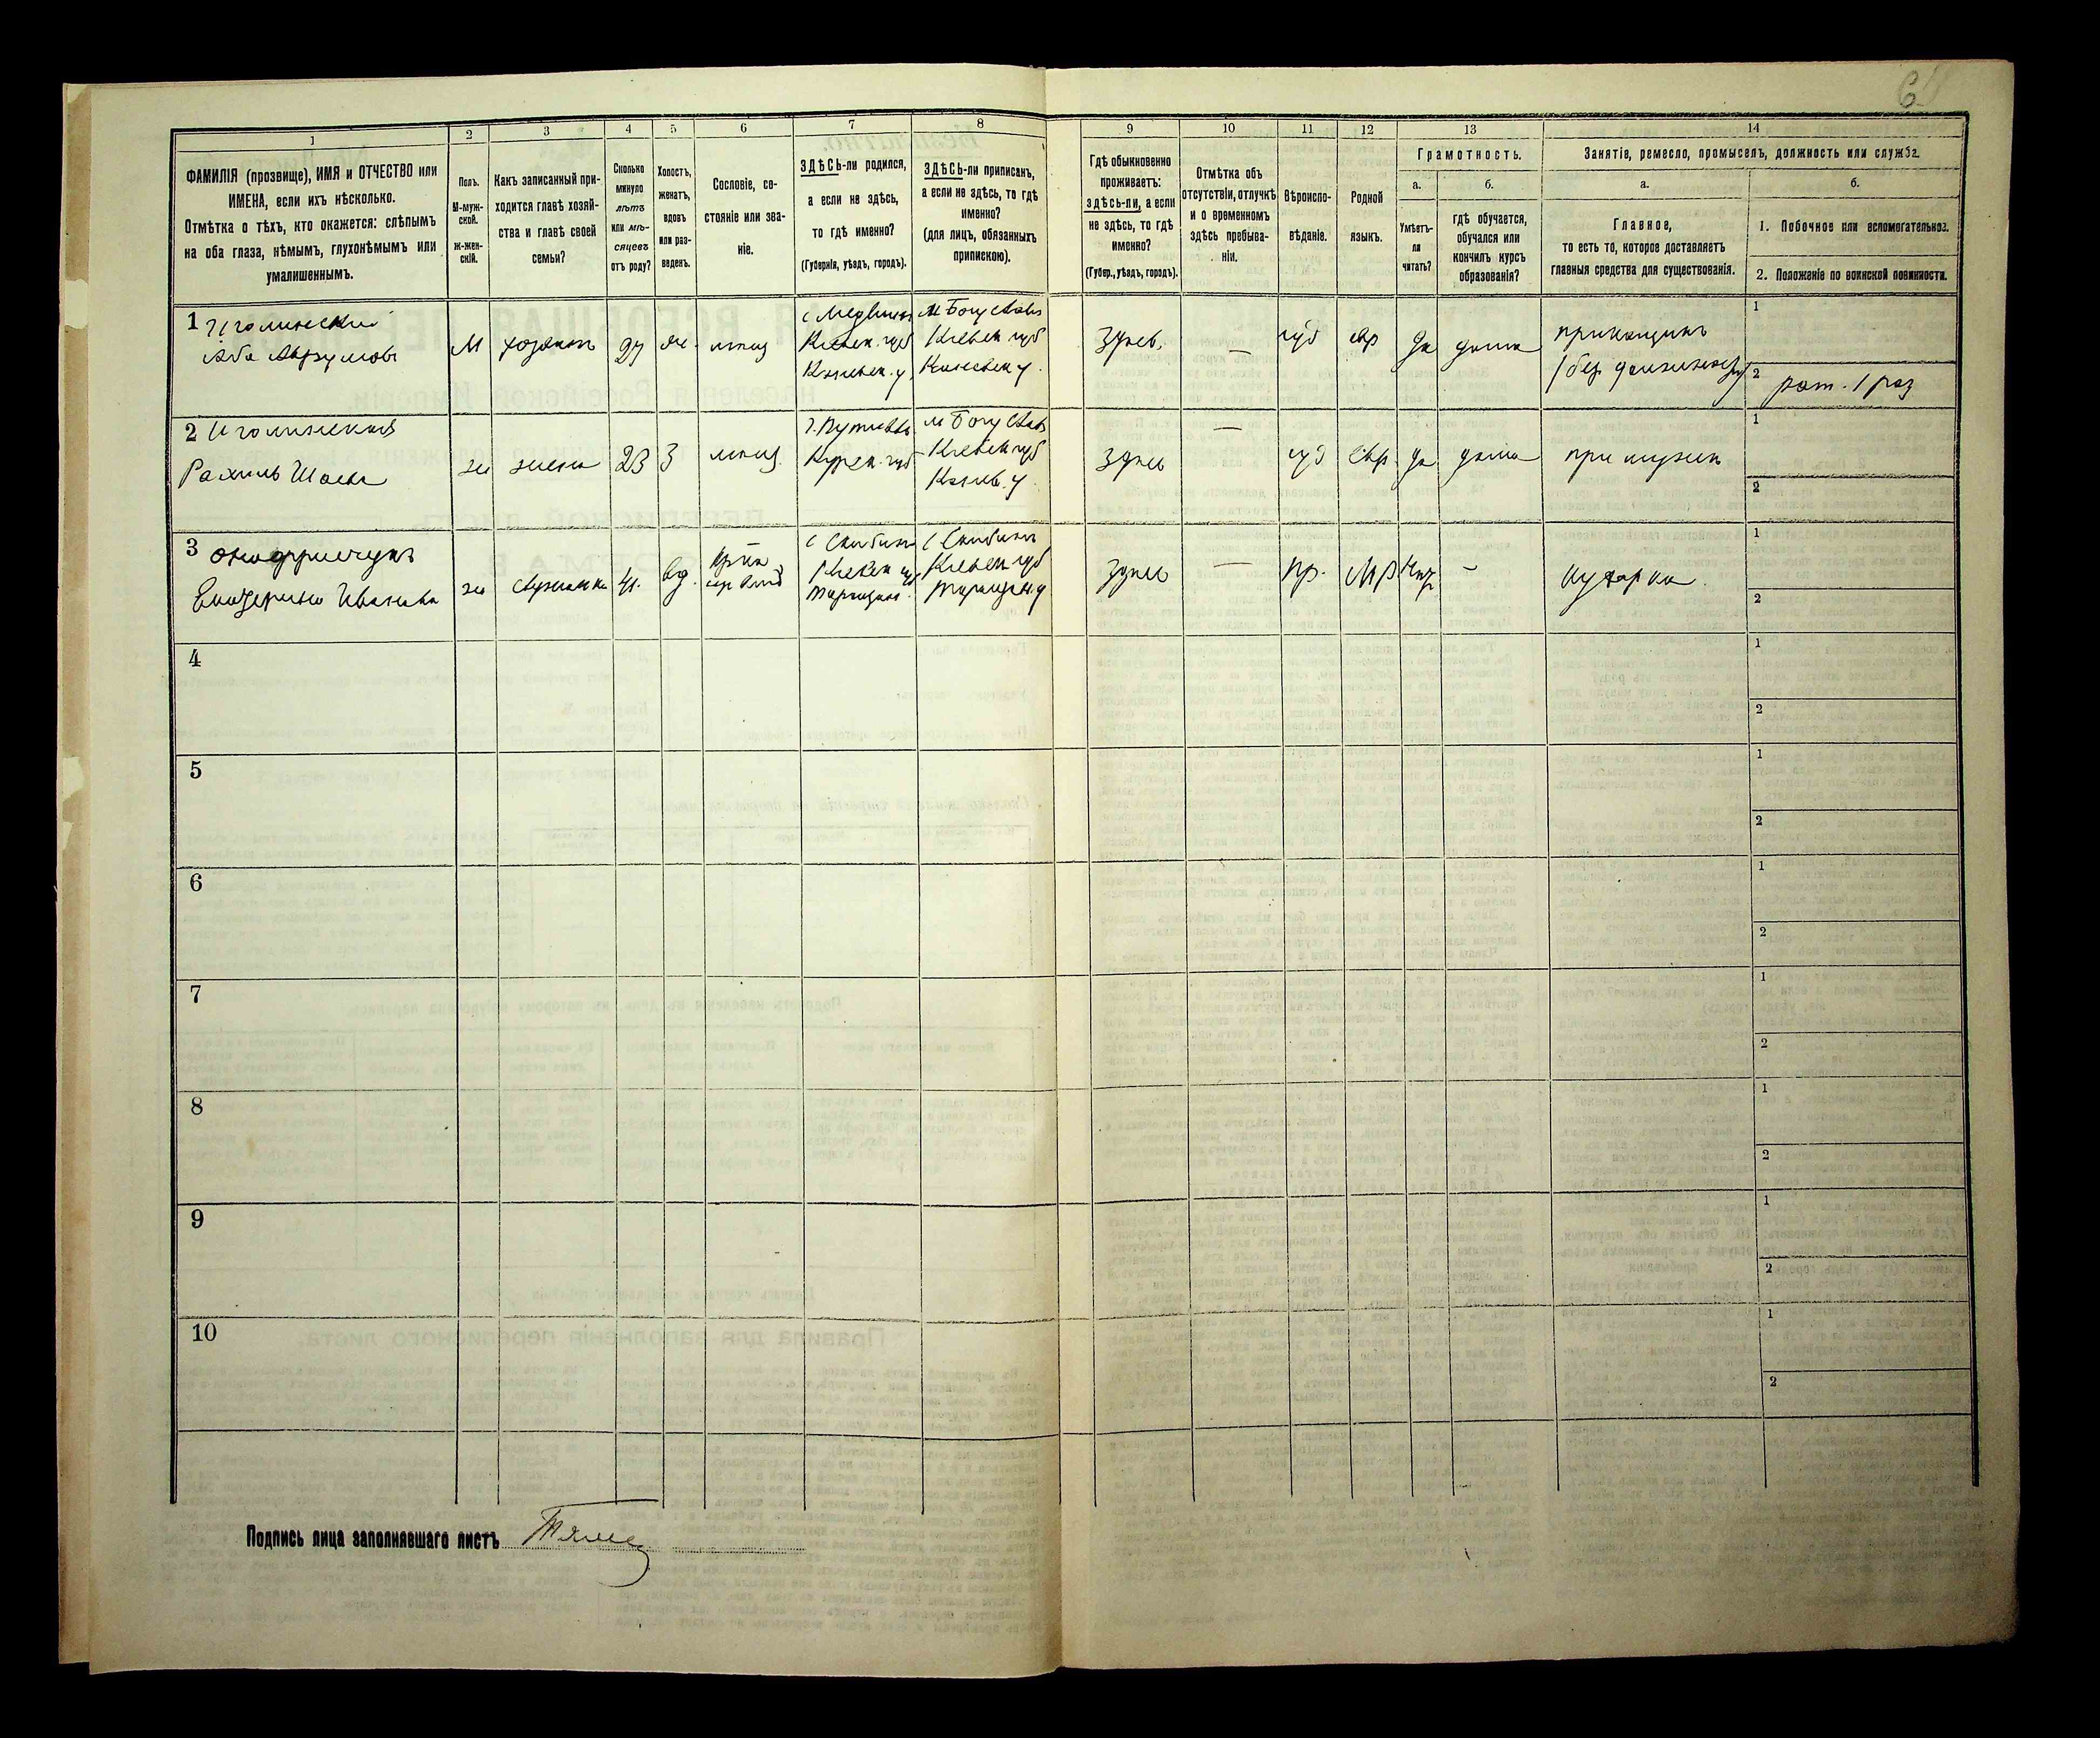 1
2
3
4
5
6
7
8
9
10
11
12
13
14
ФАМИЛІЯ (прозвище), ИМЯ и ОТЧЕСТВО или
ИМЕНА, если ихъ нѣсколько.
Отмѣтка о тѣхъ, кто окажется: слѣпымъ
на оба глаза, нѣмымъ, глухонѣмымъ или
умалишеннымъ.
Полъ.
М-муж-
ской.
ж-жен-
скій.
Какъ записанный при-
ходится главѣ хозяй-
ства и главѣ своей
семьи?
Сколько
минуло
лѣтъ
или мѣ-
сяцевъ
отъ роду?
Холостъ,
женатъ,
вдовъ
или раз-
веденъ.
Сословіе, со-
стояніе или зва-
ніе.
ЗДѢСЬ-ли родился,
а если не здѣсь,
то гдѣ именно?
(Губернія, уѣздъ, городъ).
ЗДѢСЬ-ли приписанъ,
а если не здѣсь, то гдѣ
именно?
(для лицъ, обязанныхъ
припискою).
Гдѣ обыкновенно
проживаетъ:
здѣсь-ли, а если
не здѣсь, то гдѣ
именно?
(Губер., уѣздъ, городъ).
Отмѣтка объ
отсутствіи, отлучкѣ
и о временномъ
здѣсь пребыва-
ніи.
Вѣроиспо-
вѣданіе.
Родной
языкъ.
Грамотность.
а.
Умѣетъ-
ли
читать?
б.
гдѣ обучается,
обучался или
кончилъ курсъ
образованія?
Занятіе, ремесло, промыселъ, должность или служба.
а.
Главное,
то есть то, которое доставляетъ
главныя средства для существованія.
б.
1. Побочное или вспомогательное.
2. Положеніе по воинской повинности.
1
М
хозяинъ
27
м Богуславъ
Кіевск. губ
Кіевск. губ
Каневск. у.
Каневск у.
здѣсь
—
іуд
евр
да
дома
прикащикъ
1
2 рат. 1 раз
2
Рахиль
ж
жена
23
З
г. Путивль
Курск. губ
м Богуславъ
Кіевск губ
Канев. у.
здѣсь
—
іуд
евр.
да
дома
при мужѣ
1
2
3 Онофрійчукъ
Екатерина Иванова
ж
служанка
41
вд.
Кіевск губ
Таращан. у
здѣсь
—
пр.
Мр
—
кухарка.
1
2
4
1
2
5
1
2
6
1
2
7
1
2
8
1
2
9
1
2
10
1
2
Подпись лица заполнявшаго листъ